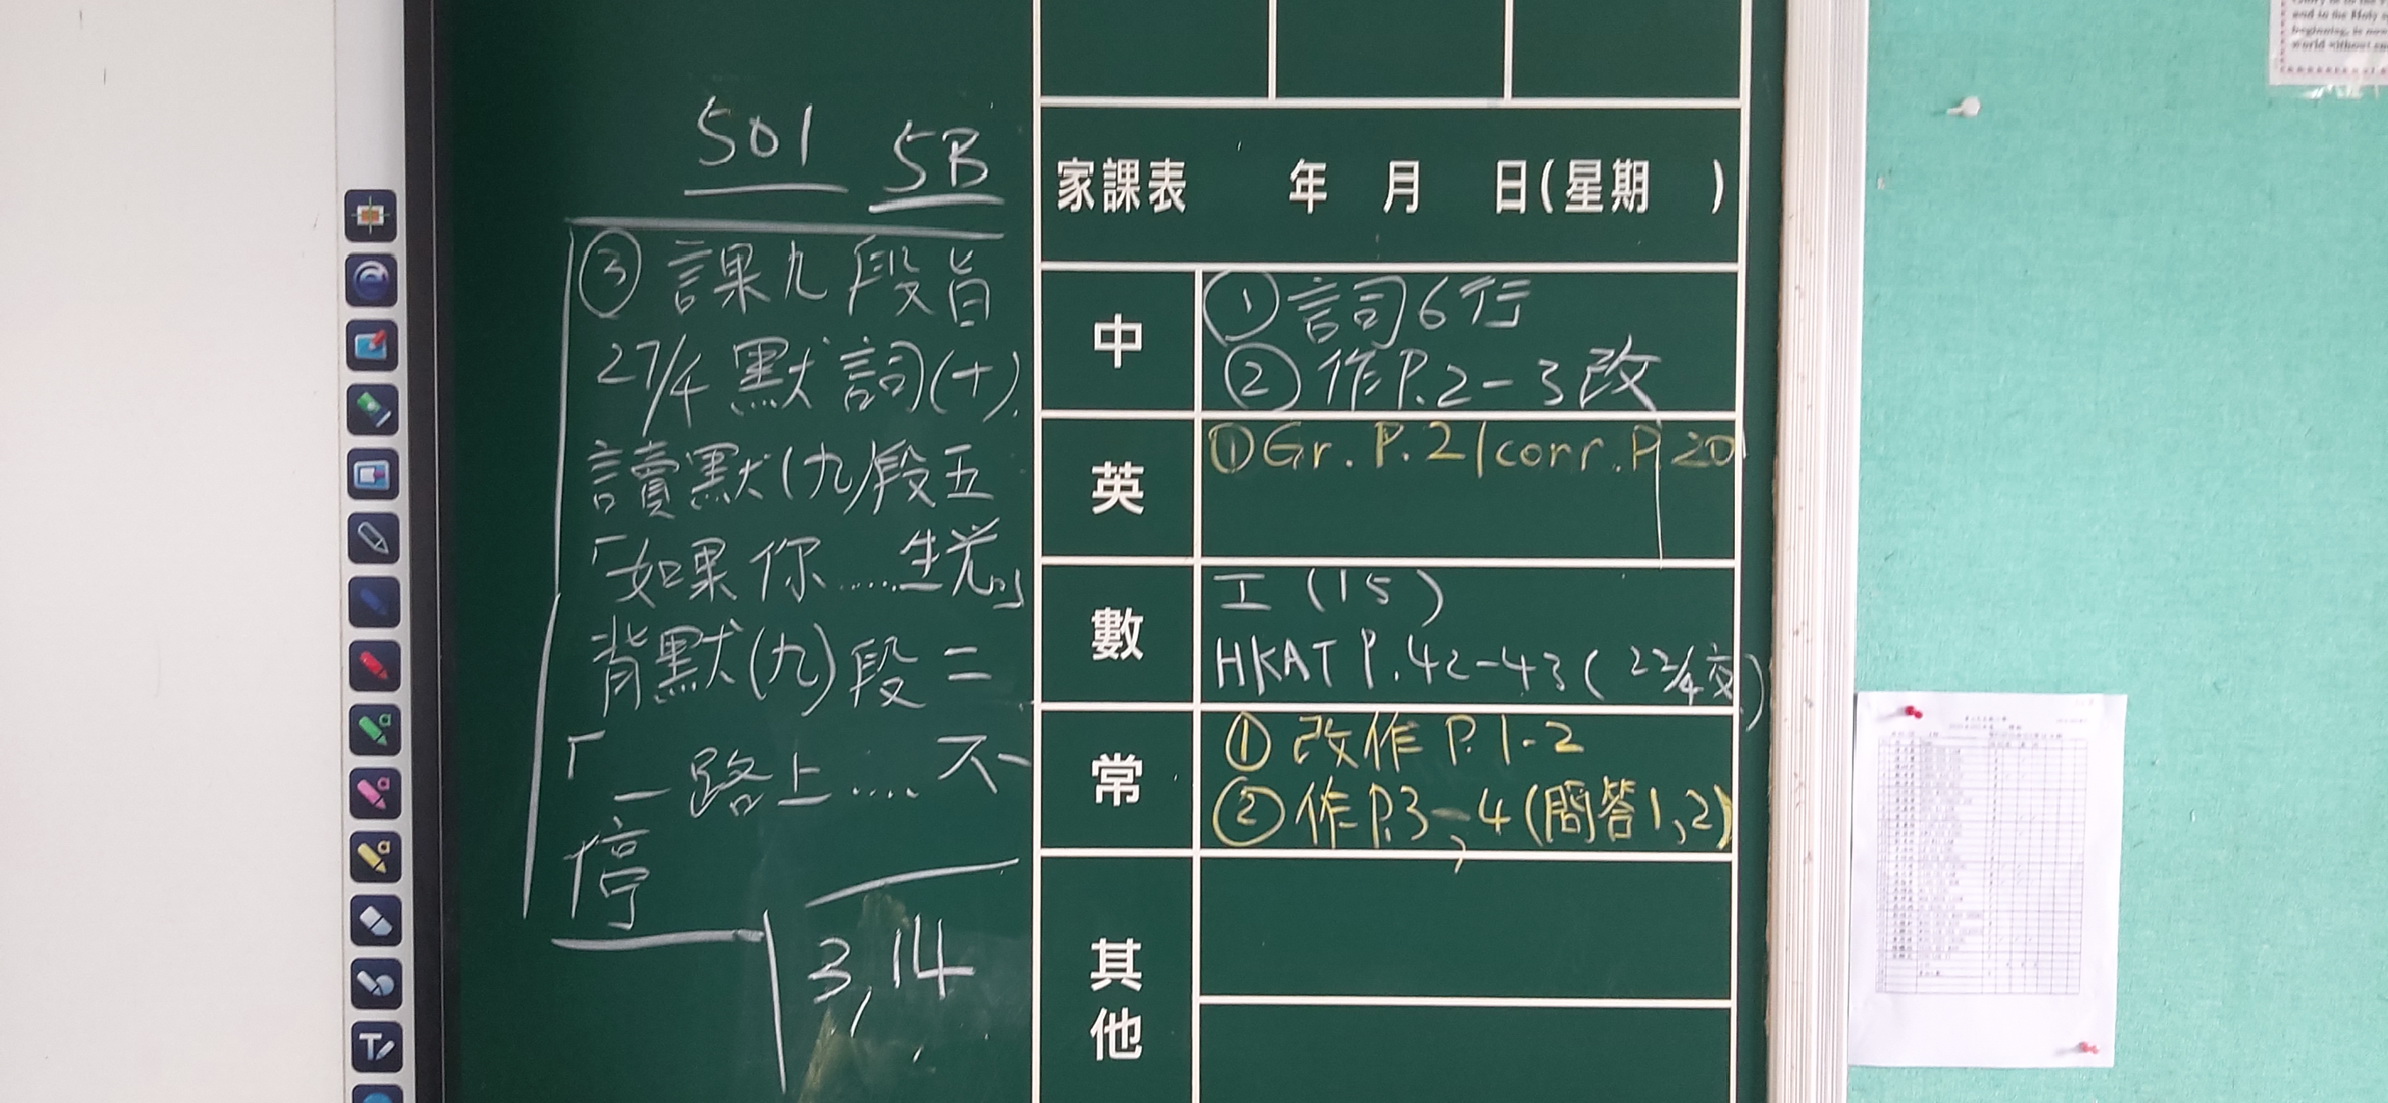 501 5B
③ 課九段旨
27/4 默詞(十)
讀默(九)段五
「如果你......生覚」
背默(九)段二
「一路上....不
停
3,14
家課表 年 月 日(星期 )
中
① 詞6行
② 作P.2-3改
英
① Gr. P.21 corr. P.20
數
工(15)
HKAT P.42-43(22/4交)
常
① 改作 P.1-2
② 作P.3-4(問答1,2)
其他